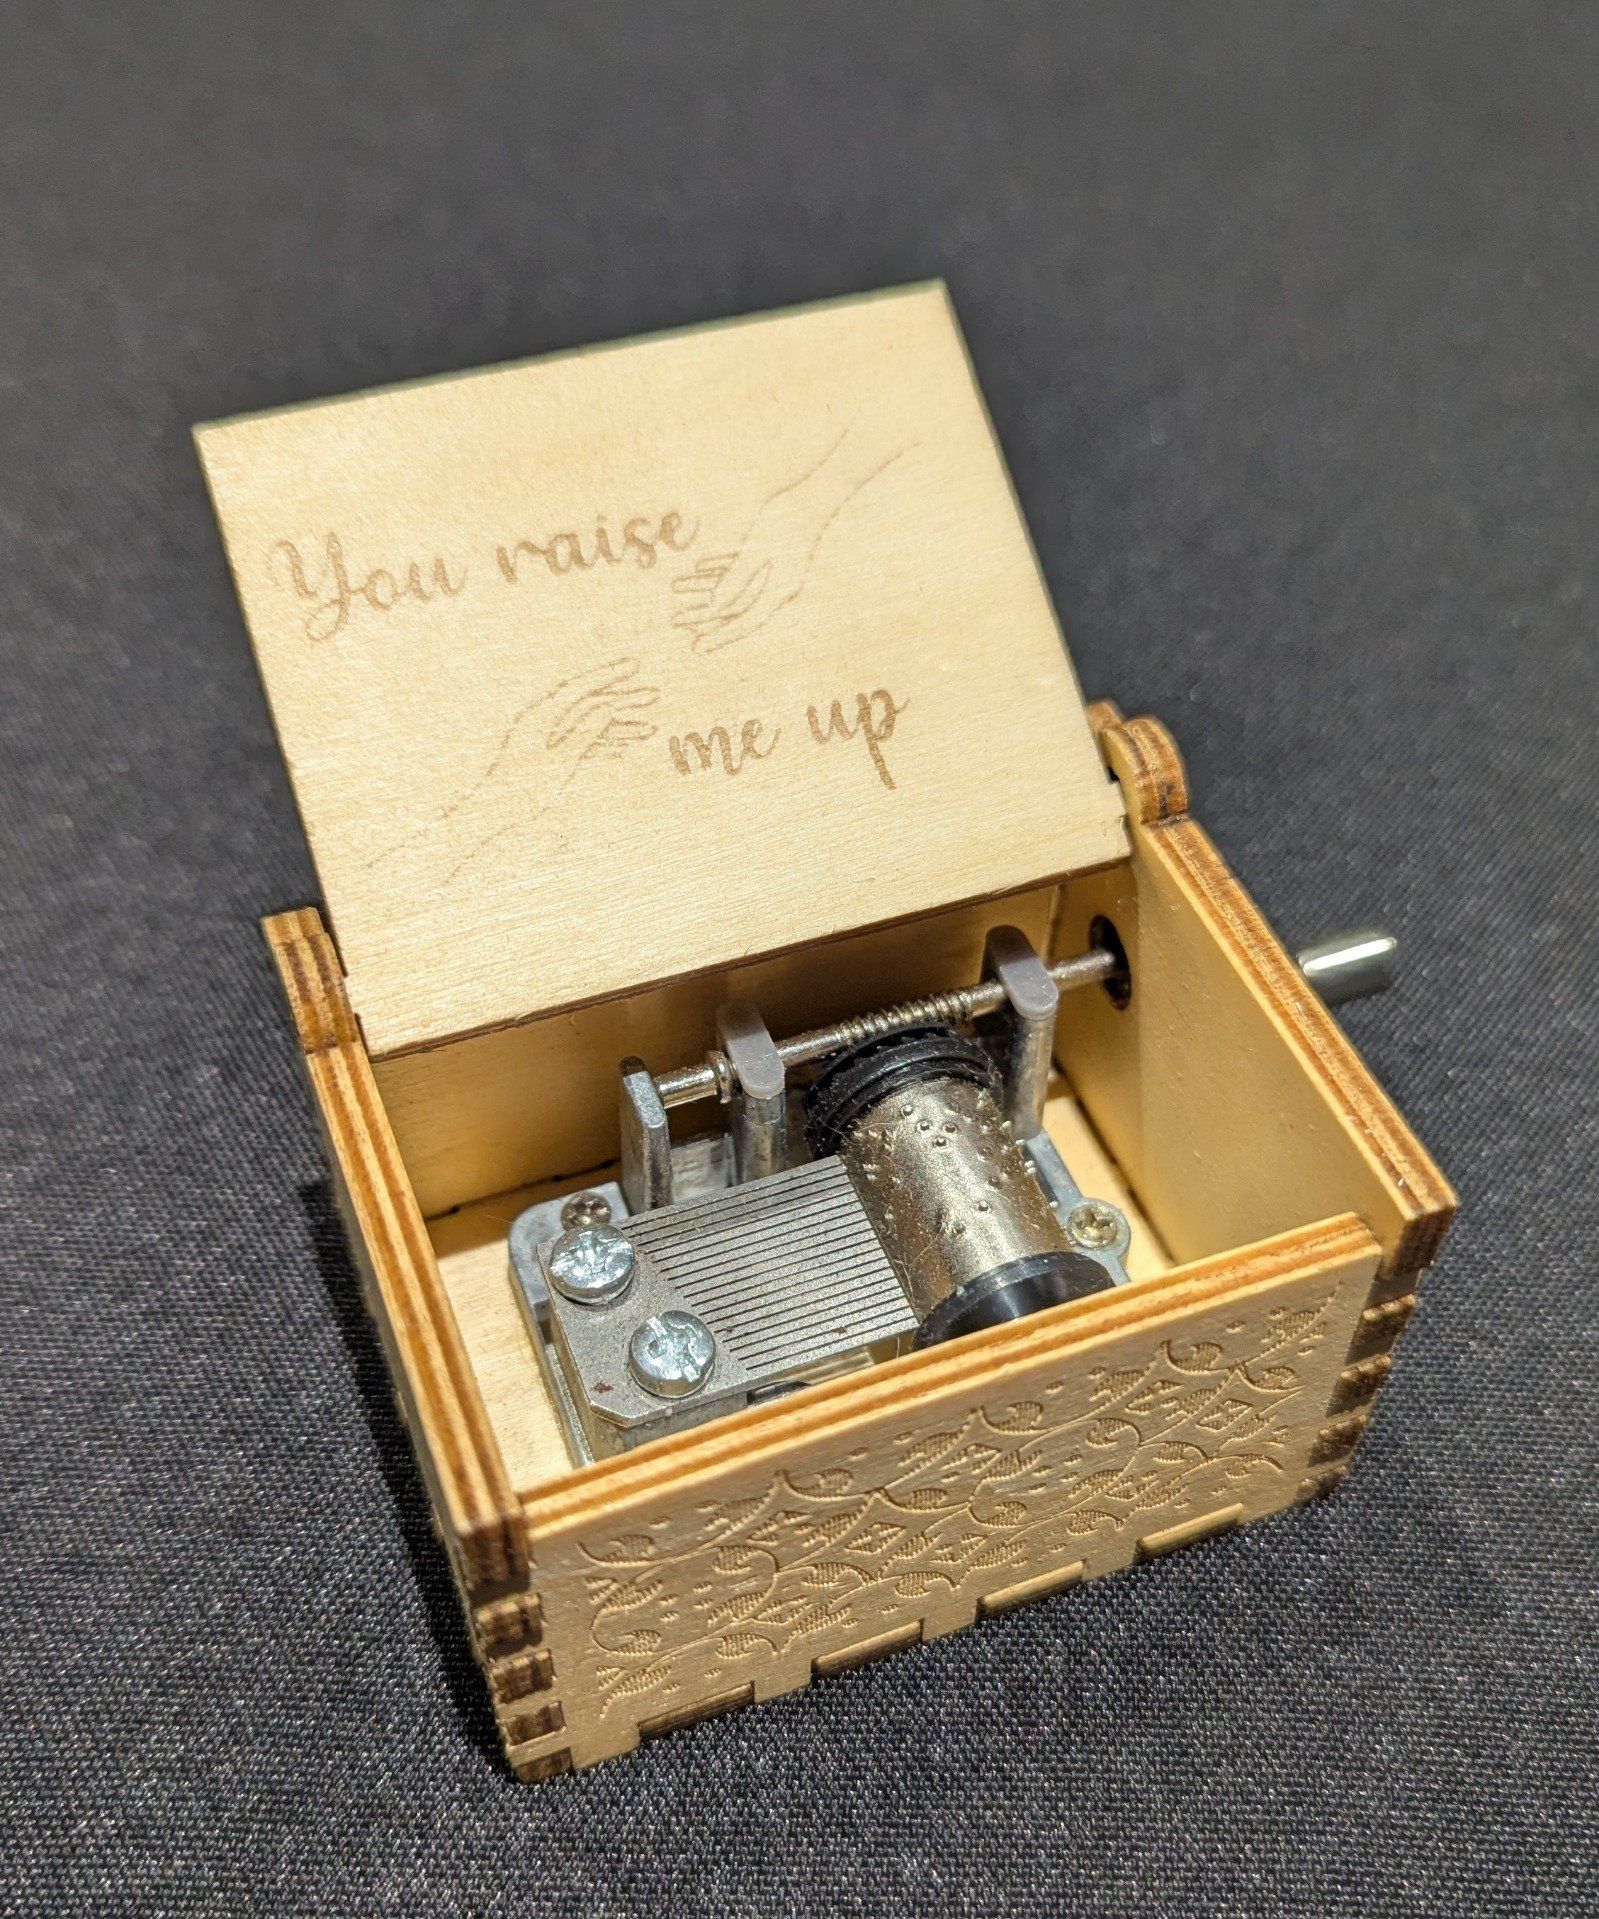 You raise
me up